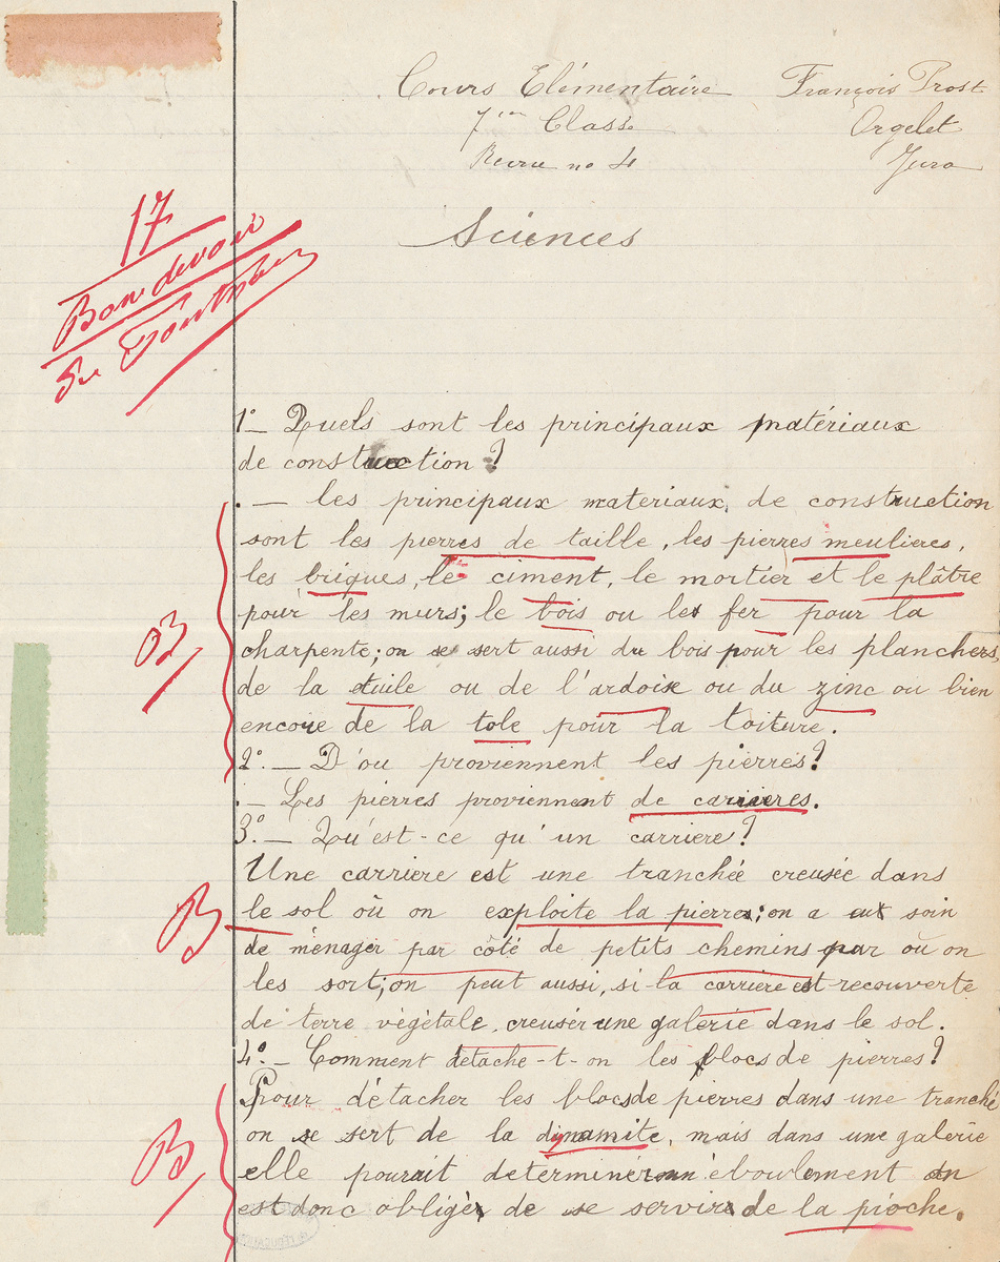 Cours Elémentaire François Prost
7ème Classe Orgelet
Revue no 4 Jura
Sciences
17
Bon devoir
1°_ Quels sont les principaux matériaux
de construction ?
._ les principaux materiaux de construction
sont les pierres de taille, les pierres meulieres,
les briques, le ciment, le mortier et le plâtre
pour les murs; le bois ou le fer pour la
charpente; on se sert aussi du bois pour les planchers
de la tuile ou de l'ardoise ou du zinc ou bien
encore de la tole pour la toiture.
B
2°._ D'ou proviennent les pierres?
._ Les pierres proviennent de carrieres.
3°._ Qu'est-ce qu'un carriere?
Une carriere est une tranchée creusée dans
le sol où on exploite la pierre; on a eut soin
B
de ménager par côté de petits chemins par où on
les sort; on peut aussi, si la carriere est recouverte
de terre végétale, creuser une galerie dans le sol.
4°._ Comment détache-t-on les blocs de pierres?
Pour détacher les blocs de pierres dans une tranché
on se sert de la dynamite, mais dans une galerie
B
elle pourait determiner un éboulement on
est donc obligé de se servir de la pioche.